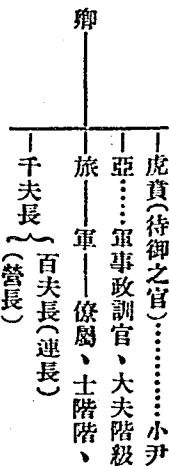 卿
虎賁(待御之官)…………小尹
亞……軍事政訓官、大夫階級
旅——軍——僚屬、士階階、
千夫長 百夫長(連長)
(營長)